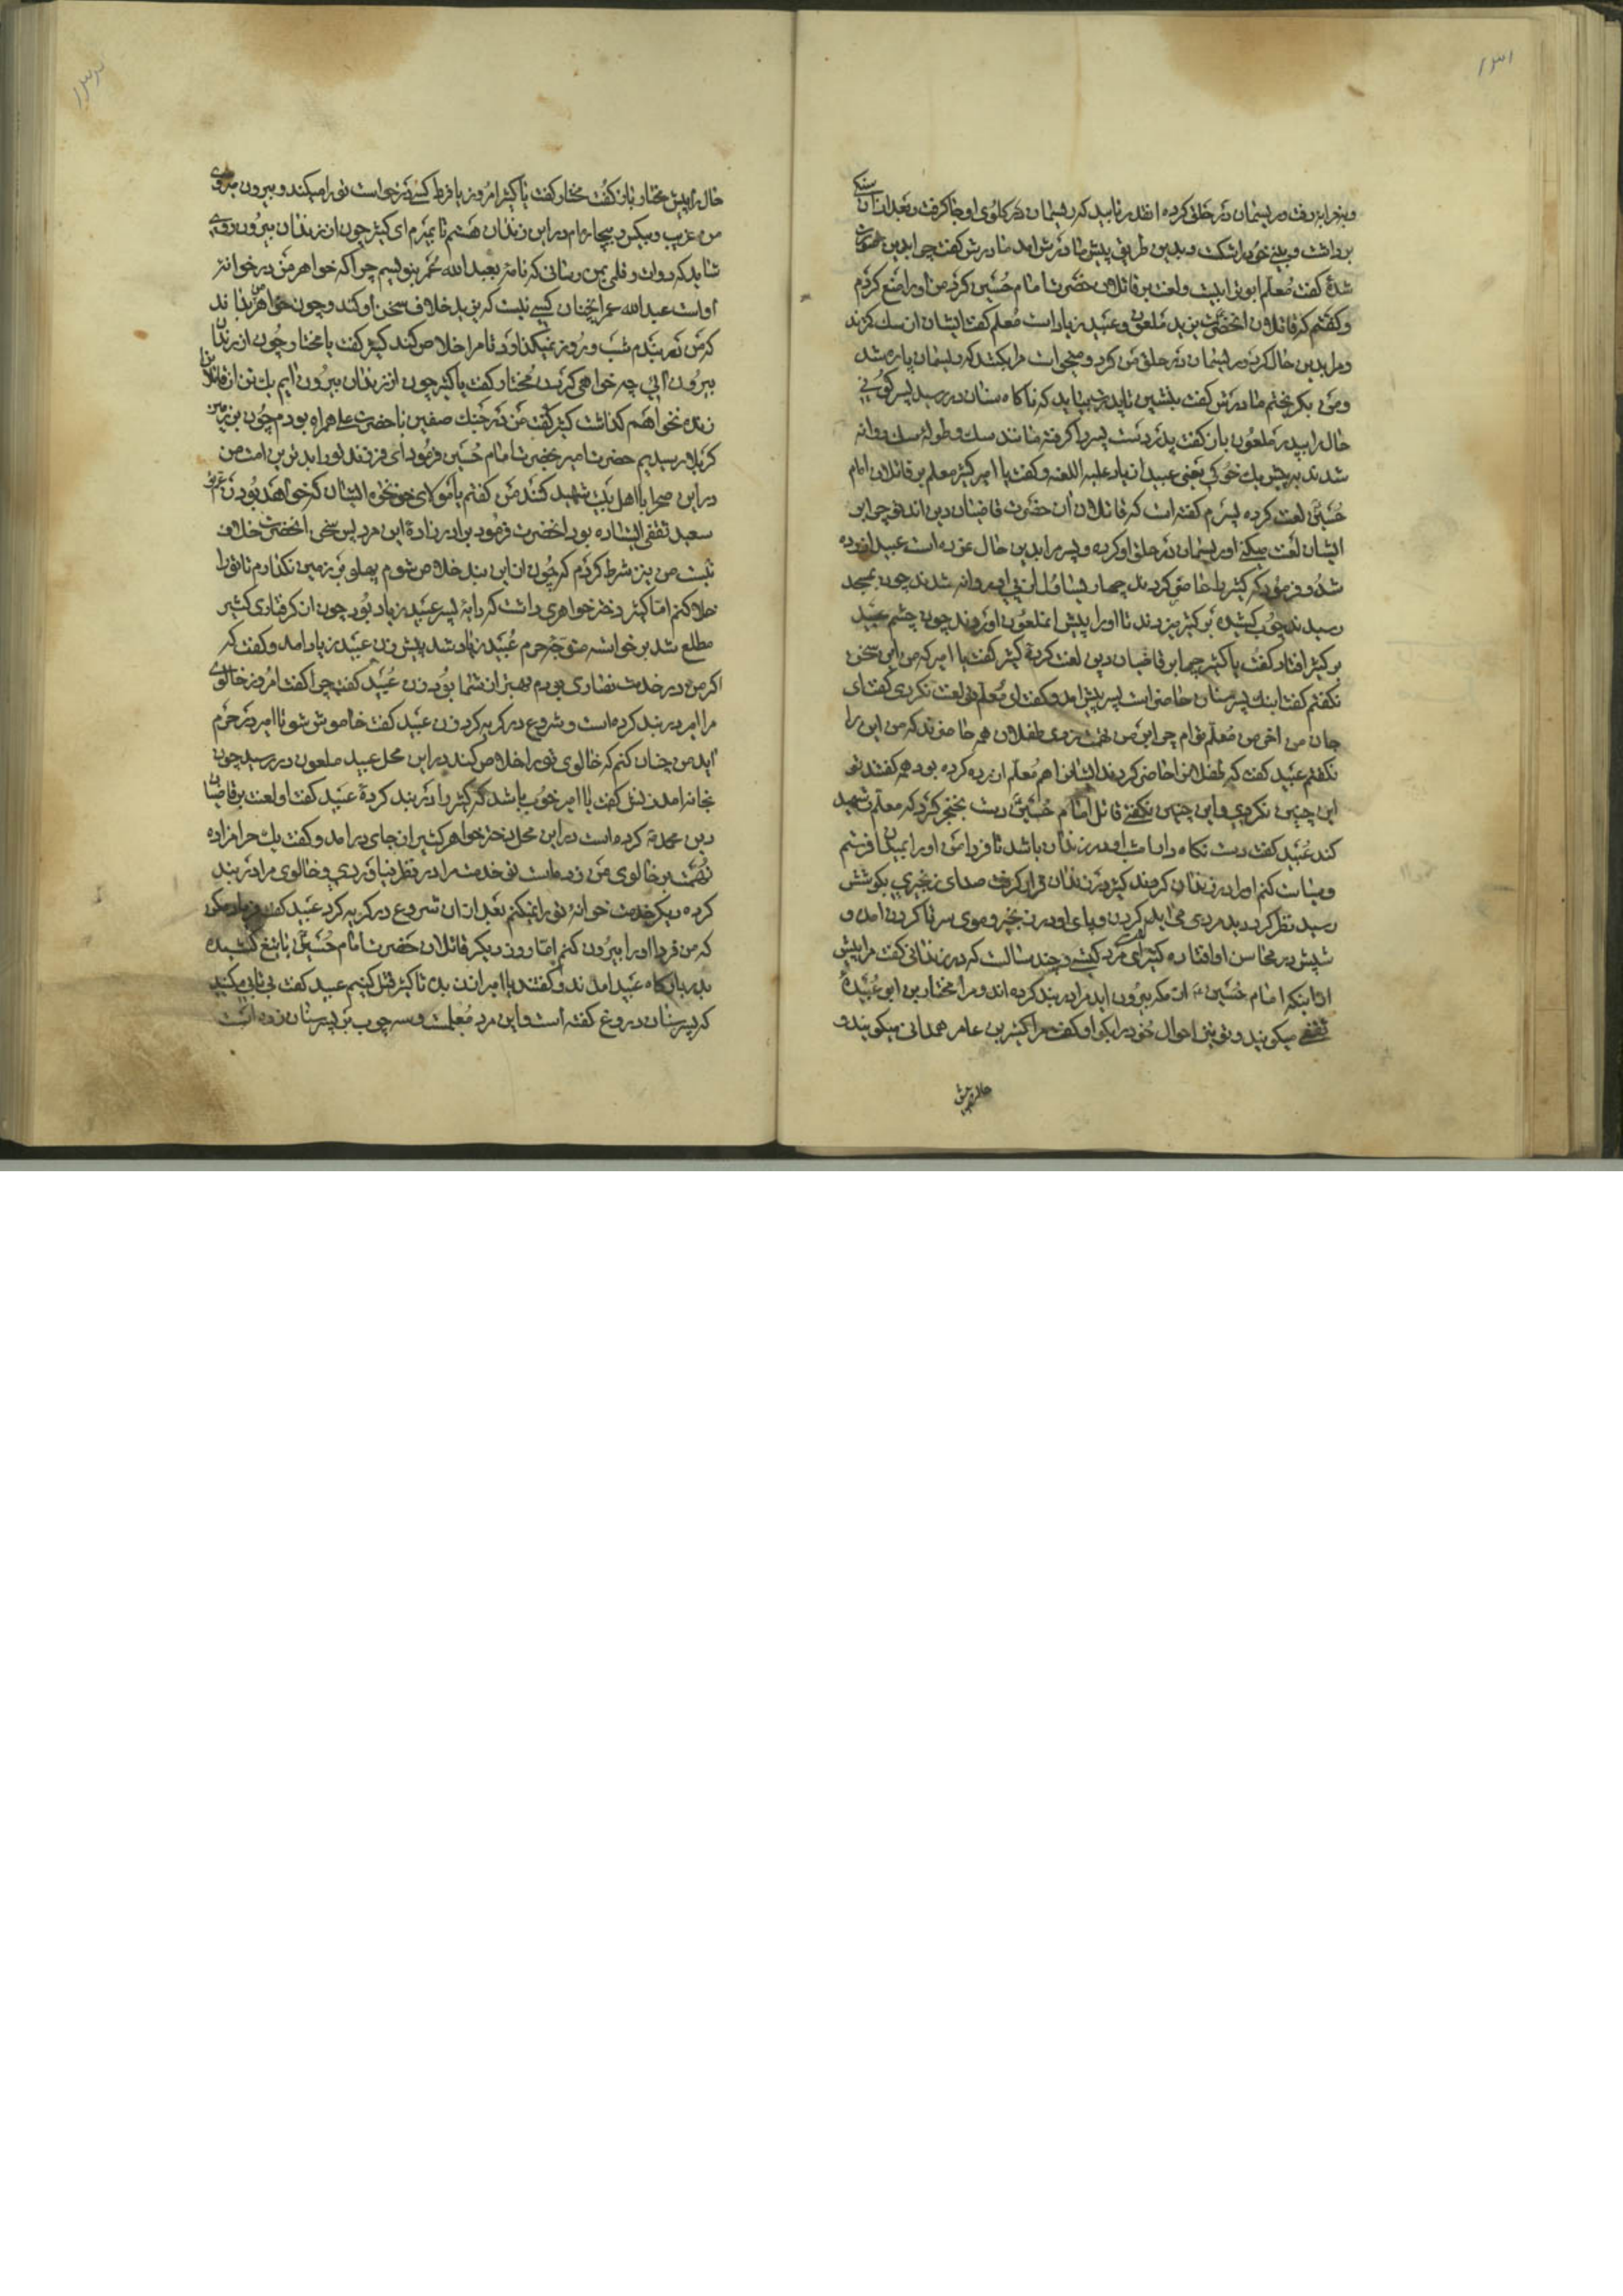 ۱۳۱
شده کفت معلم ابوترابیست و لعنت بر قاتلان حضرت امام حسین کرد من او را منع کردم
و کفتم که قاتلان انحضرت یزید ملعون و عبید زیاد است معلم کفت ایشان از سک کمترند
و مرا بدین حال کرد و ریسمان در حلق من کرد و میخواست مرا بکشد که ریسمان پاره شد
و من بکریختم مادرش کفت بنشین تا پدرت بیاید که ناکاه سنان در رسید پسر
حال را بپدر ملعون باز کفت پدر دست پسر را کرفته مانند سک و طوله سک روانه
شدند به پیش یعنی عبید زیاد علیه اللعنه و کفت یا امیر کثیر معلم بر قاتلان امام
حسین لعنت کرده پسرم کفته است که قاتلان ان حضرت قاضیان دین اند تو چرا بر
ایشان لعنت میکنی او ریسمان در حلق او کرده و پسر مرا بدین حال
شد و فرمود که کثیر را حاضر کردند چهار
رسیدند چوب کشیده بر کثیر میزدند تا او را پیش انملعون اوردند چون چشم عبید
بر کثیر افتاد کفت یا کثیر چرا بر قاضیان دین لعنت کردۀ کثیر کفت یا امیر که من این سخن
نکفتم کفت اینک پسر سنان حاضر است پسر پیش امد و کفت ای معلم تو لعنت نکردی کفت ای
جان من اخر من معلم توام چرا بر من تهمت میزنی طفلان همه حاضرند که من این را
نکفتم عبید کفت که طفلان را حاضر کردند ایشانرا هم معلم ازرده کرده بود همه کفتند تو
این چنین نکردی و این چنین نکفتی قاتل امام حسین دست بخنجر کرد که معلم را شهید
کند عبید کفت دست نکاه دار امشب او در زندان باشد تا فردا من او را بمیدان فرستم
و سیاست کنم او را در زندان کردند کثیر در زندان قرار کرفت صدای زنجیری بکوشش
رسید نظر کرد دید مردی را غل در کردن و پای او در زنجیر و موی سر تا کردن امده و
شپش در محاسن او افتاده کثیر کفت ای مرد چه کسی و چند سالست که در زندانی کفت مرا پیش
از اینکه امام حسین از مکه بیرون اید مرا در بند کرده اند و مرا مختار بن ابو عبیدۀ
ثقفی میکویند و تو نیز احوال خود را بکو او کفت مرا کثیر بن عامر همدانی میکویند و
حال را پیش
۱۳۲
حال را پیش مختار باز کفت مختار کفت یا کثیر امروز یا فردا کسی در خواست تو را میکند و بیرون میروی
من غریب و بیکس و بیچاره ام در این زندان هستم تا بمیرم ای کثیر چون از زندان بیرون روی
شاید که دوات و قلمی بمن رسانی که نامۀ بعبدالله عمر بنویسم چرا که خواهر من در خوانۀ
اوست عبدالله عمر انچنان کسی نیست که یزید خلاف سخن او کند و چون خواهر من بداند
که من در بندم شب و روز نمیکذارد تا مرا خلاص کند کثیر کفت یا مختار چون از زندان
بیرون ائی چه خواهی کردن مختار کفت یا کثیر چون از زندان بیرون ایم یک تن از قاتلان را
زنده نخواهم کذاشت کثیر کفت من در جنک صفین با حضرت علی همراه بودم چون بزمین
کربلا رسیدیم حضرت امیر حضرت امام حسین فرمود ای فرزند تو را بدترین امت من
در این صحرا با اهل بیت شهید کنند من کفتم یا مولای خونخواه ایشان که خواهد بودن
سعید ثقفی ایستاده بود انحضرت فرمود برادرزادۀ این مرد پس سخن انحضرت خلاف
نیست من نیز شرط کردم که چون از این بند خلاص شوم پهلو بر زمین نکذارم تا تو را
خلاص کنم اما کثیر دختر خواهری داشت که دایۀ پسر عبید زیاد بود چون از کرفتاری کثیر
مطلع شد برخواسته متوجه حرم عبید زیاد شد پیش زن عبید زیاد امد و کفت که
اکر من در خدمت نصاری بودم بهتر از شما بود زن عبید کفت چرا کفت امروز خالوی
مرا امیر در بند کرده است و شروع در کریه کرد زن عبید کفت خاموش شو تا امیر در حرم
اید من چنان کنم که خالوی تو را خلاص کند در این محل عبید ملعون در رسید چون
بخانه امد زنش کفت یا امیر خوب باشد که کثیر را در بند کردۀ عبید کفت او لعنت بر قاضیان
دین محمد کرده است در این محل دختر خواهر کثیر از جای در امد و کفت یک حرامزاده
تهمت بر خالوی من زده است تو خدمت مرا در نظر نیاوردی و خالوی مرا در بند
کرده دیکر خدمت خوانۀ تو را نمیکنم بعد از ان شروع در کریه کرد عبید کفت
که من فردا او را بیرون کنم اما روز دیکر قاتلان حضرت امام حسین با تیغ کشیده
بدربارکاه عبید امدند و کفتند یا امیر اذن بده تا کثیر قتل کنیم عبید کفت بی تابی مکنید
که پسر سنان دروغ کفته است و این مرد معلمست و سه چوب بر پسر سنان زده است